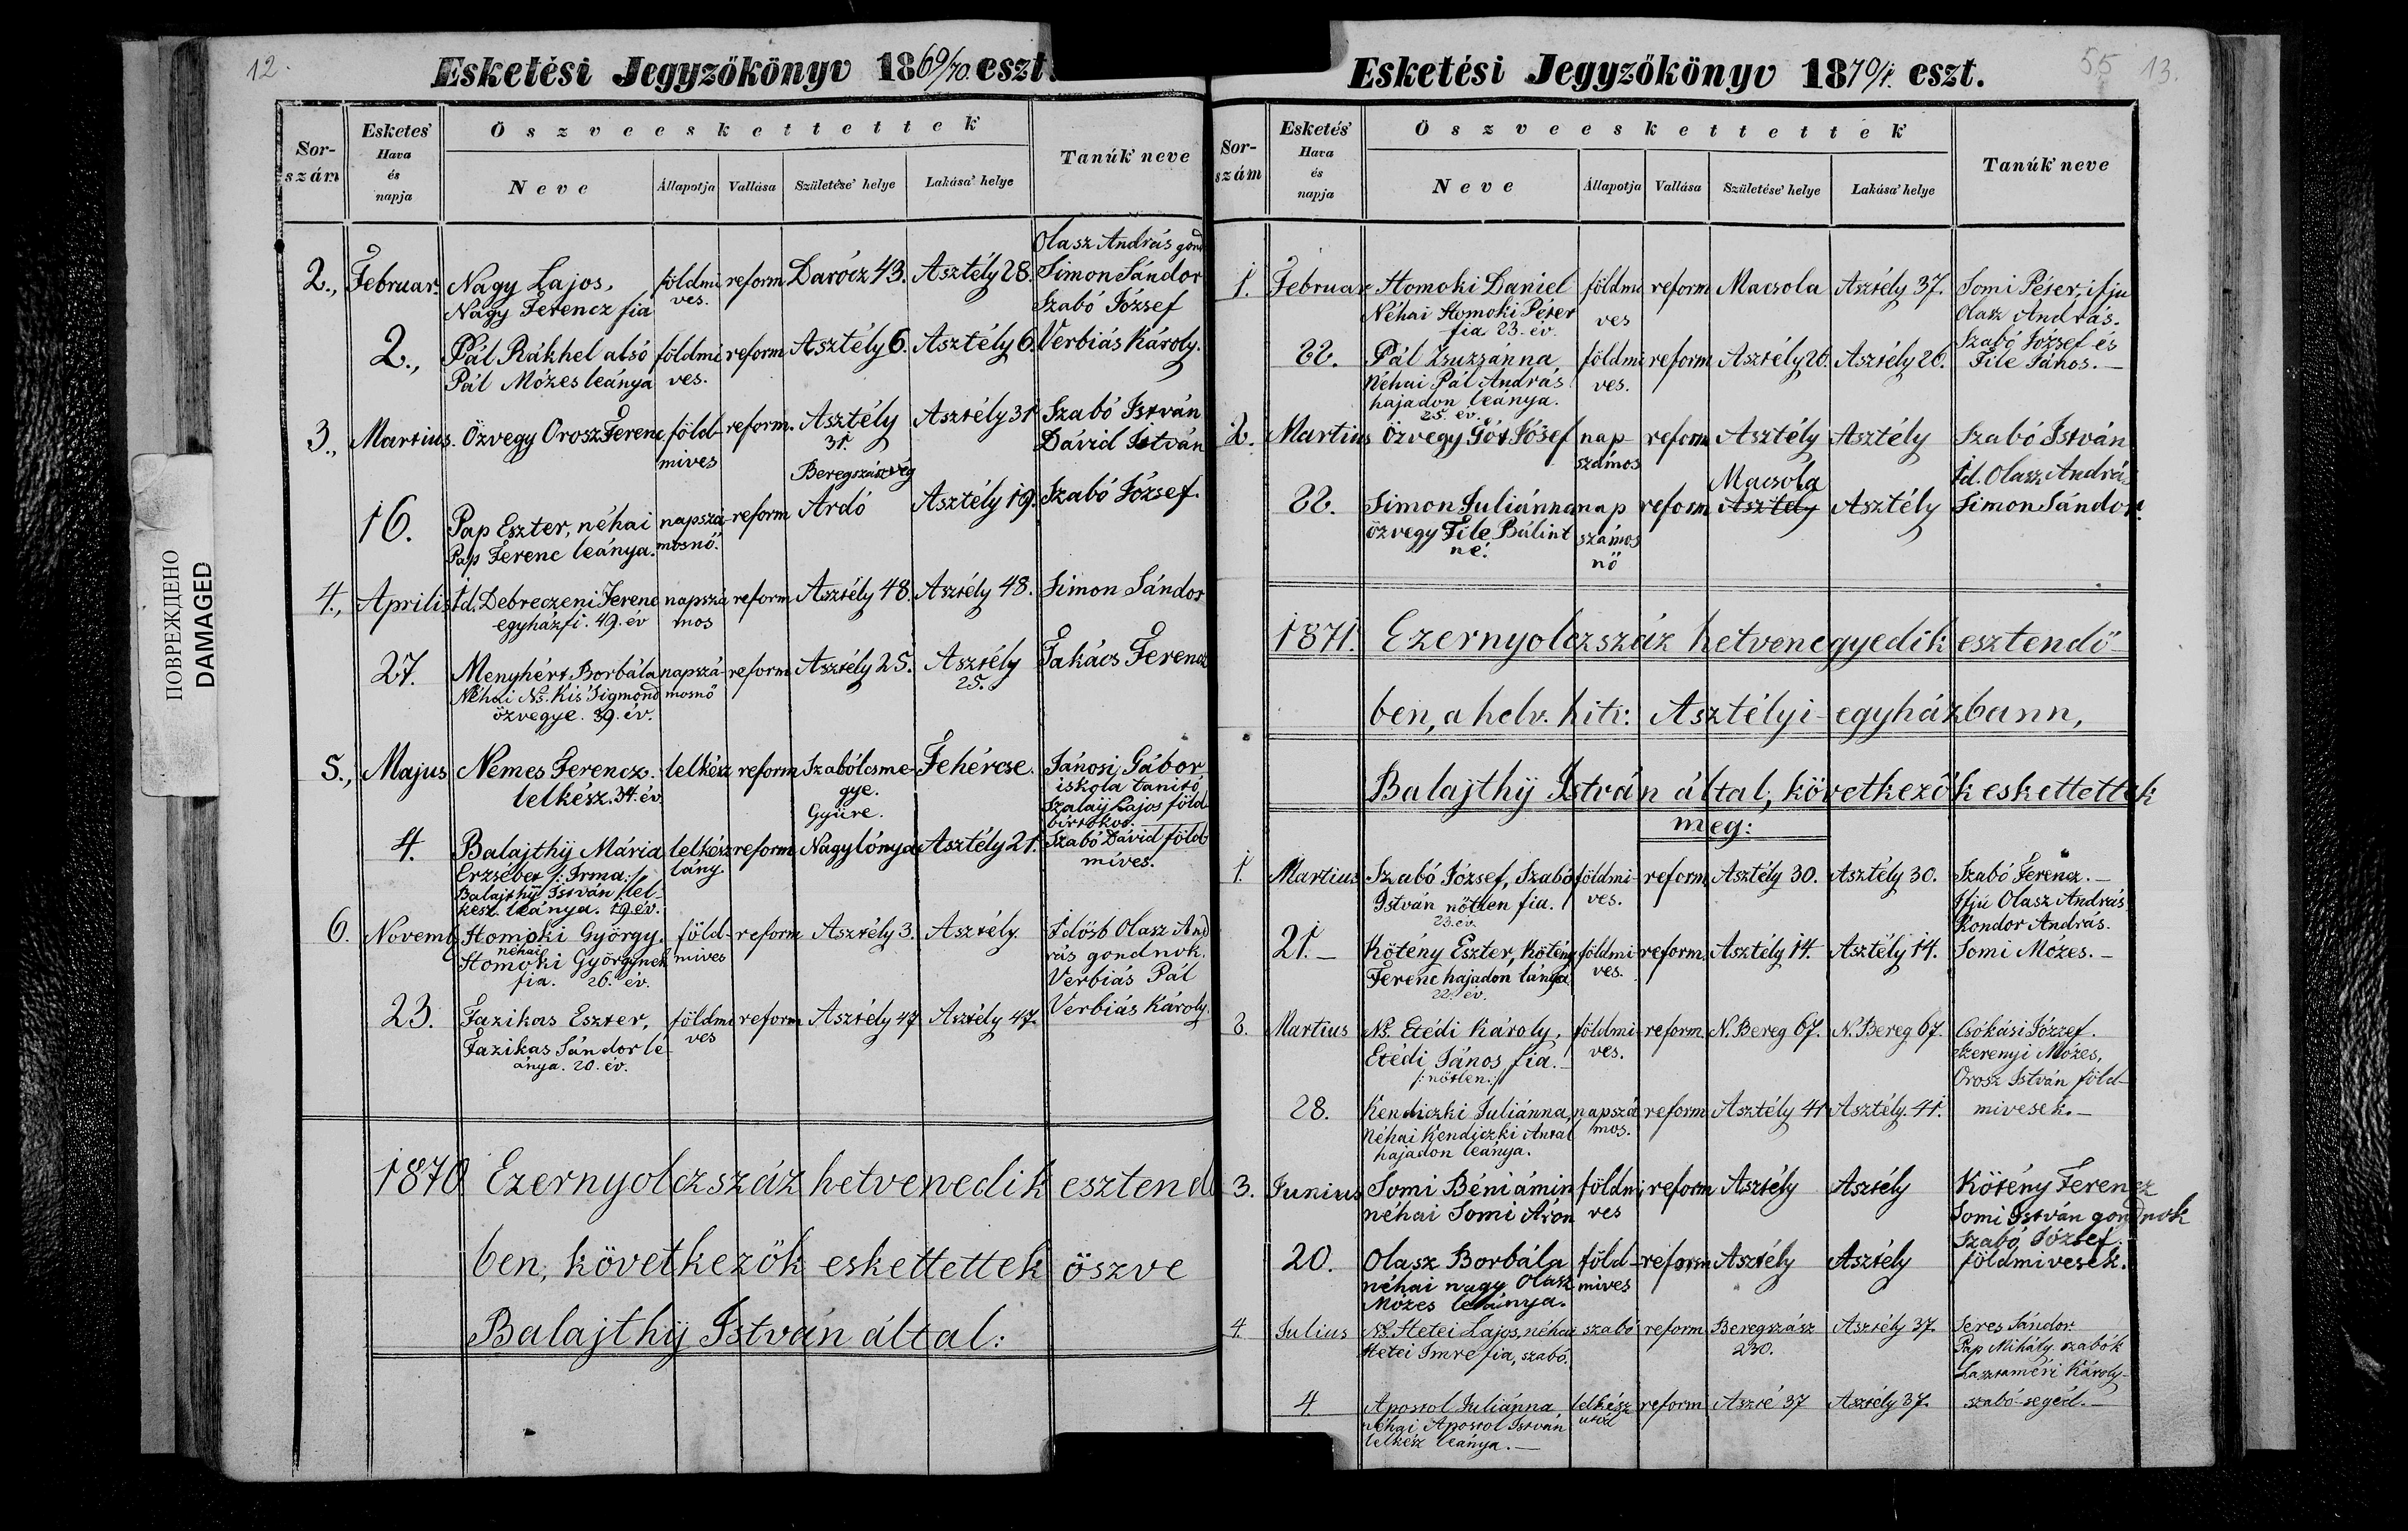 ПОВРЕЖДЕНО
DAMAGED
12.
Esketési Jegyzőkönyv 1869/70. eszt.
Sor-szám
Esketes' Hava és napja
Öszveeskettettek
Neve
Állapotja
Vallása
Születése' helye
Lakása' helye
Tanúk' neve
Olasz András gond
2., Februar. Nagy Lajos, földmi reform Darócz 43. Asztély 28. Simon Sándor
Nagy Ferencz fia ves. Szabó József
2., Pál Rákhel alsó földmi reform Asztély 6. Asztély 6. Verbiás Károly.
Pál Mózes leánya ves.
3., Martius. Özvegy Orosz Ferenc föld- reform. Asztély Asztély 31 Szabó István
mives 31. Dávid István
Beregszászvég
16. Pap Eszter, néhai napszá- reform Ardó Asztély 19. Szabó József.
Pap Ferenc leánya. mosnő.
4., Aprilis Id. Debreczeni Ferenc napszá reform Asztély 48. Asztély 48. Simon Sándor
egyházfi. 49. év mos
27. Menyhért Borbála napszá- reform Asztély 25. Asztély Takács Ferencz
Néhai Ns. Kis Sigmond mosnő 25.
özvegye. 39. év.
5., Majus Nemes Ferencz. lelkész reform Szabólcsme- Fehércse. Jánosi Gábor
lelkész. 34. év. gye. iskola tanitó
Gyüre. Szalaij Lajos föld-
birtokos.
4. Balajthij Mária lelkész reform Nagylónya Asztély 21. Szabó Dávid föld
Erzsébet /:Irma:/ lány. mives.
Balajthij István lel-
kész leánya. 19 év.
6. Novemb Homoki György. föld- reform Asztély 3. Asztély. Idősb Olasz And
néhai mives rás gondnok.
Homoki Györgynek Verbiás Pál
fia. 26. év.
23. Fazikas Eszter, földmi reform Asztély 47 Asztély 47. Verbiás Károly.
Fazikas Sándor le- ves
ánya. 20. év.
1870 Ezernyolczszáz hetvenedik esztend
ben, következők eskettettek öszve
Balajthij István által:
55 13.
Esketési Jegyzőkönyv 1870/1. eszt.
Sor-szám
Esketés' Hava és napja
Öszveeskettettek
Neve
Állapotja
Vallása
Születése' helye
Lakása' helye
Tanúk' neve
1. Februar Homoki Daniel földmi reform Macsola Asztély 37. Somi Péter, ifju
Néhai Homoki Péter ves Olasz András.
fia. 23. év. Szabó József és
22. Pál Zsuzsánna földmi reform Asztély 20. Asztély 20. File János.—
Néhai Pál András ves.
hajadon leánya.
25. év.
2. Martius özvegy Tót Jósef nap- reform Asztély Asztély Szabó István
számos Macsola Id. Olasz András
22. Simon Juliánna nap reform Asztély Asztély Simon Sándor.
özvegy File Bálint számos
né. nő
1871. Ezernyolczszáz hetvenegyedik esztendő-
ben, a helv. hitv: Asztélyi-egyházbann,
Balajthij István által, következők eskettettek
meg:
1. Martius Szabó József, Szabó földmi- reform Asztély 30. Asztély 30. Szabó Ferencz.—
István nőtlen fia. ves. Ifjú Olasz András
23. év. Kondor András.
21.— Kötény Eszter, Kötény földmi- reform. Asztély 14. Asztély 14. Somi Mózes.—
Ferenc hajadon lánya. ves.
22. év.
2. Martius Ns. Etédi Károly, földmi- reform. N. Bereg 67. N. Bereg 67. Csókási József.
Etédi János fia.— ves. Szerenyi Mózes,
/:nőtlen.:/ Orosz István föld-
28. Kendiczki Juliánna, napszá reform Asztély 41 Asztély. 41. mivesek.—
Néhai Kendiczki Antal mos.
hajadon leánya.
3. Junius Somi Béniámin földmi reform Asztély Asztély Kötény Ferencz
néhai Somi Áron ves Somi István gondnok
Szabó József.
20. Olasz Borbála föld- reform Asztély Asztély földmivesek.
néhai nagy Olasz mives
Mózes leánya.
4. Julius Ns. Hetei Lajos, néhai szabó reform Beregszász Asztély 37. Seres Sándor.
Hetei Imre fia, szabó. 230. Pap Mihály. szabók
Károly—
4. Apostol Juliánna lelkész reform Aszté 37 Asztély 37. szabó-segéd.—
néhai Apostol István
lelkész leánya.—